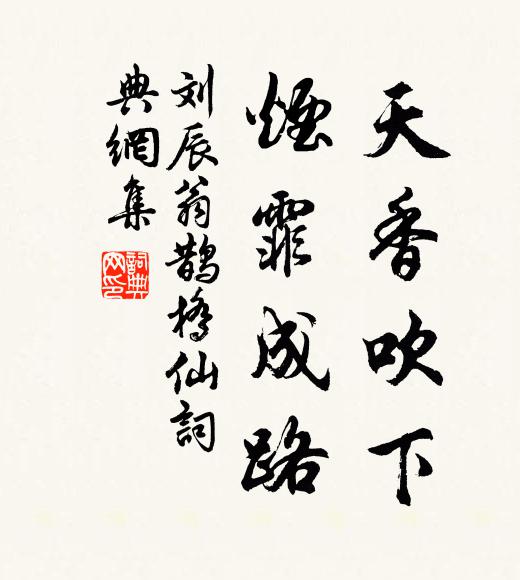 天香吹下
煙霏成路
刘辰翁鵲橋仙詞
典網集
詞典网印